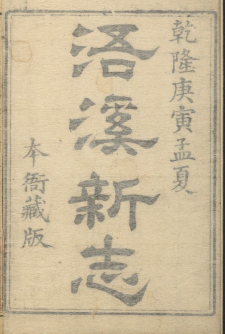 乾隆庚寅孟夏
浯溪新志
本衙藏版